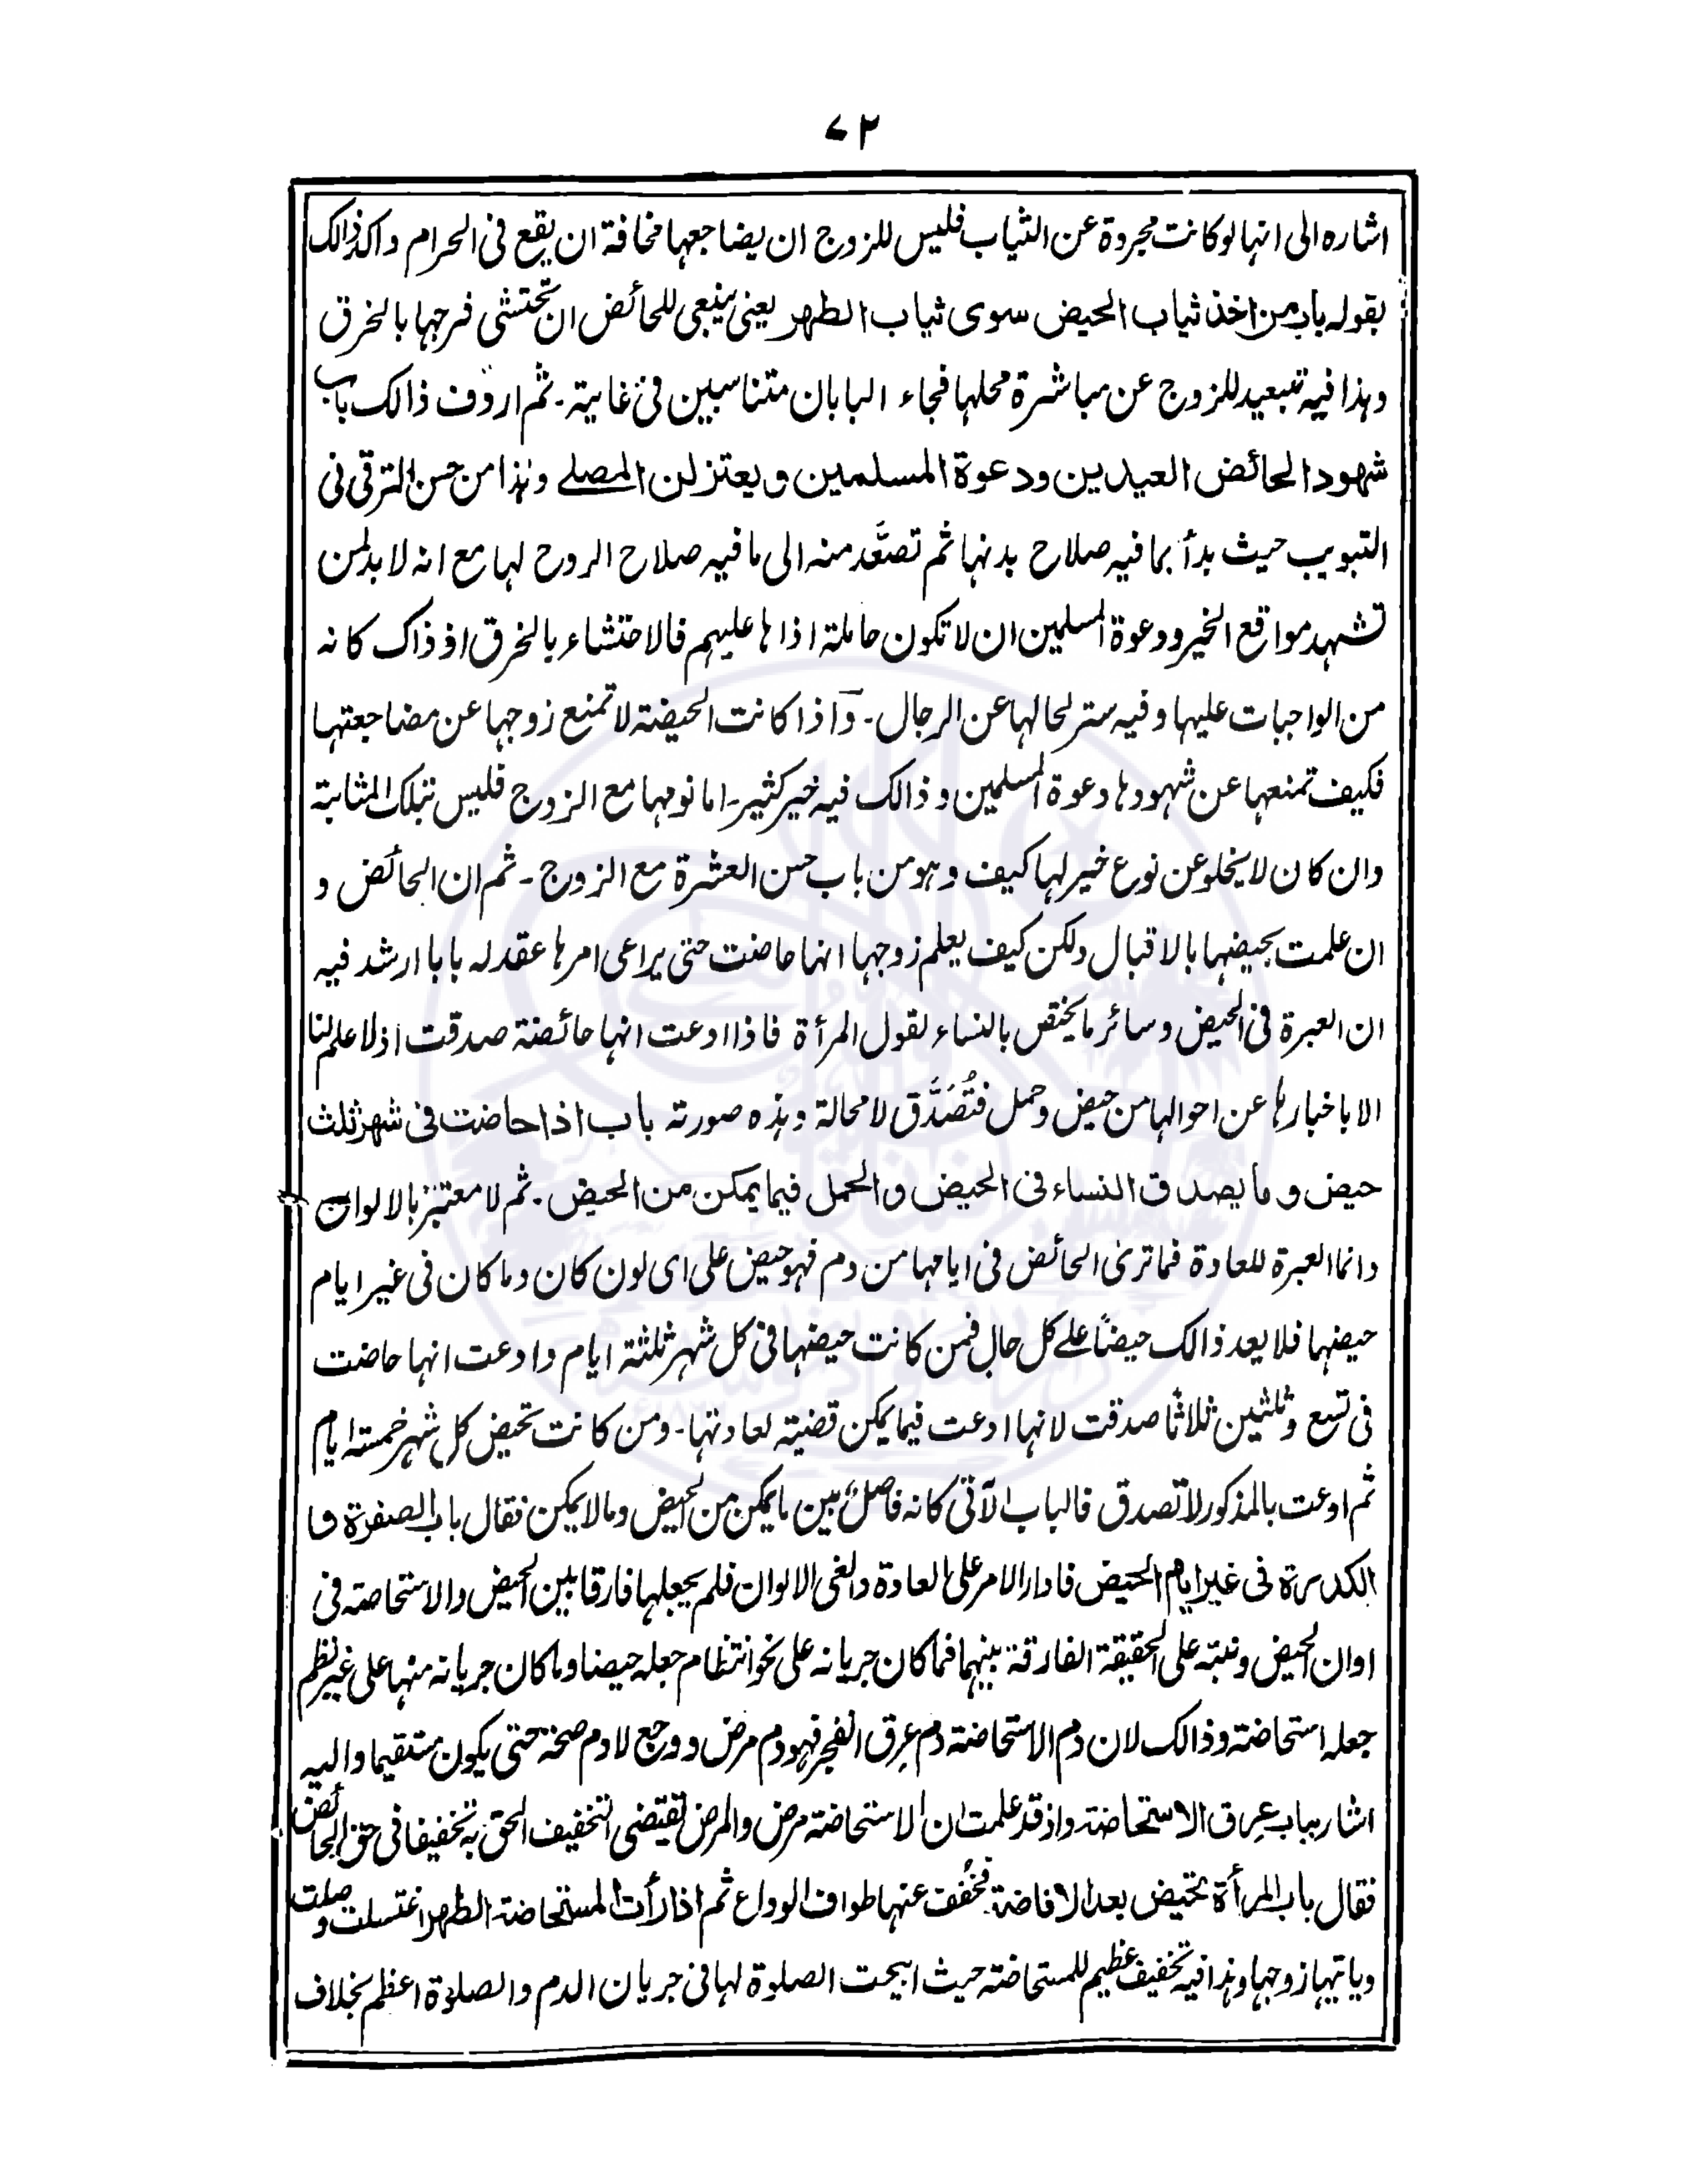 ۷۲
اشاره الى انها لو كانت مجردة عن الثياب فليس للزوج ان يضاجعها مخافة ان يقع فى الحرام واكد ذالك
بقوله باب من اخذ ثياب الحيض سوى ثياب الطهر يعنى ينبغى للحائض ان تحتشى فرجها بالخرق
وهذا فيه تبعيد للزوج عن مباشرة محلها فجاء البابان متناسبين فى غايية۔ ثم اردف ذالك باب
شهود الحائض العيدين ودعوة المسلمين ويعتزلن المصلے وهذا من حسن الترقى فى
التبويب حيث بدأ بما فيه صلاح بدنها ثم تصعَّد منه الى ما فيه صلاح الروح لها مع انه لا بد لمن
تشهد مواقع الخير ودعوة المسلمين ان لا تكون حاملة اذاها عليهم فالاحتشاء بالخرق اذ ذاك كانه
من الواجبات عليها وفيه ستر لحالها عن الرجال۔ واذا كانت الحيضة لا تمنع زوجها عن مضاجعتها
فكيف تمنعها عن شهودها دعوة المسلمين وذالك فيه خير كثير۔ اما نومها مع الزوج فليس بتلك المثابة
وان كان لا يخلو عن نوع خير لها كيف وهو من باب حسن العشرة مع الزوج۔ ثم ان الحائض و
ان علمت بحيضها بالاقبال ولكن كيف يعلم زوجها انها حاضت حتى يراعى امرها عقد له بابا ارشد فيه
ان العبرة فى الحيض وسائر ما يختص بالنساء لقول المرأة فاذا ادعت انها حائضة صدقت اذ لا علم لنا
الا باخبارها عن احوالها من حيض وحمل فتُصَدَّق لا محالة وهذه صورته باب اذا حاضت فى شهر ثلث
حيض وما يصدق النساء فى الحيض والحمل فيما يمكن من الحيض۔ ثم لا معتبر بالالوان
وانما العبرة للعادة فما ترىٰ الحائض فى ايامها من دم فهو حيض على اى لون كان وما كان فى غير ايام
حيضها فلا يعد ذالك حيضاً علے كل حال فمن كانت حيضها فى كل شهر ثلثة ايام وادعت انها حاضت
فى تسع وثلثين ثلاثا صدقت لانها ادعت فيما يمكن قضية لعادتها۔ ومن كانت تحيض كل شهر خمسة ايام
ثم ادعت بالمذكور لا تصدق فالباب الآتى كانه فاصلٌ بين ما يمكن من الحيض وما لا يمكن فقال باب الصفرة وا
الكدرة فى غير ايام الحيض فادار الامر على العادة والغى الالوان فلم يجعلها فارقا بين الحيض والاستحاضة فى
اوان الحيض ونبّه على الحقيقة الفارقة بينهما فما كان جريانه على نحو انتظام جعله حيضا وما كان جريانه منها على غير نظم
جعله استحاضة وذالك لان دم الاستحاضة دم عِرق انفجر فهو دم مرض ووجع لا دم صحة حتى يكون مستقيما واليه
اشار بباب عِرق الاستحاضة واذ قد علمت ان الاستحاضة مرض والمرض تقتضى التخفيف الحق به تخفيفا فى حق الحائض
فقال باب المرأة تحيض بعد الافاضة فخُفف عنها طواف الوداع ثم اذا رأت المستحاضة الطهر اغتسلت وصلت
وياتيها زوجها وهذا فيه تخفيف عظيم للمستحاضة حيث ابيحت الصلوة لها فى جريان الدم والصلوة اعظم بخلاف